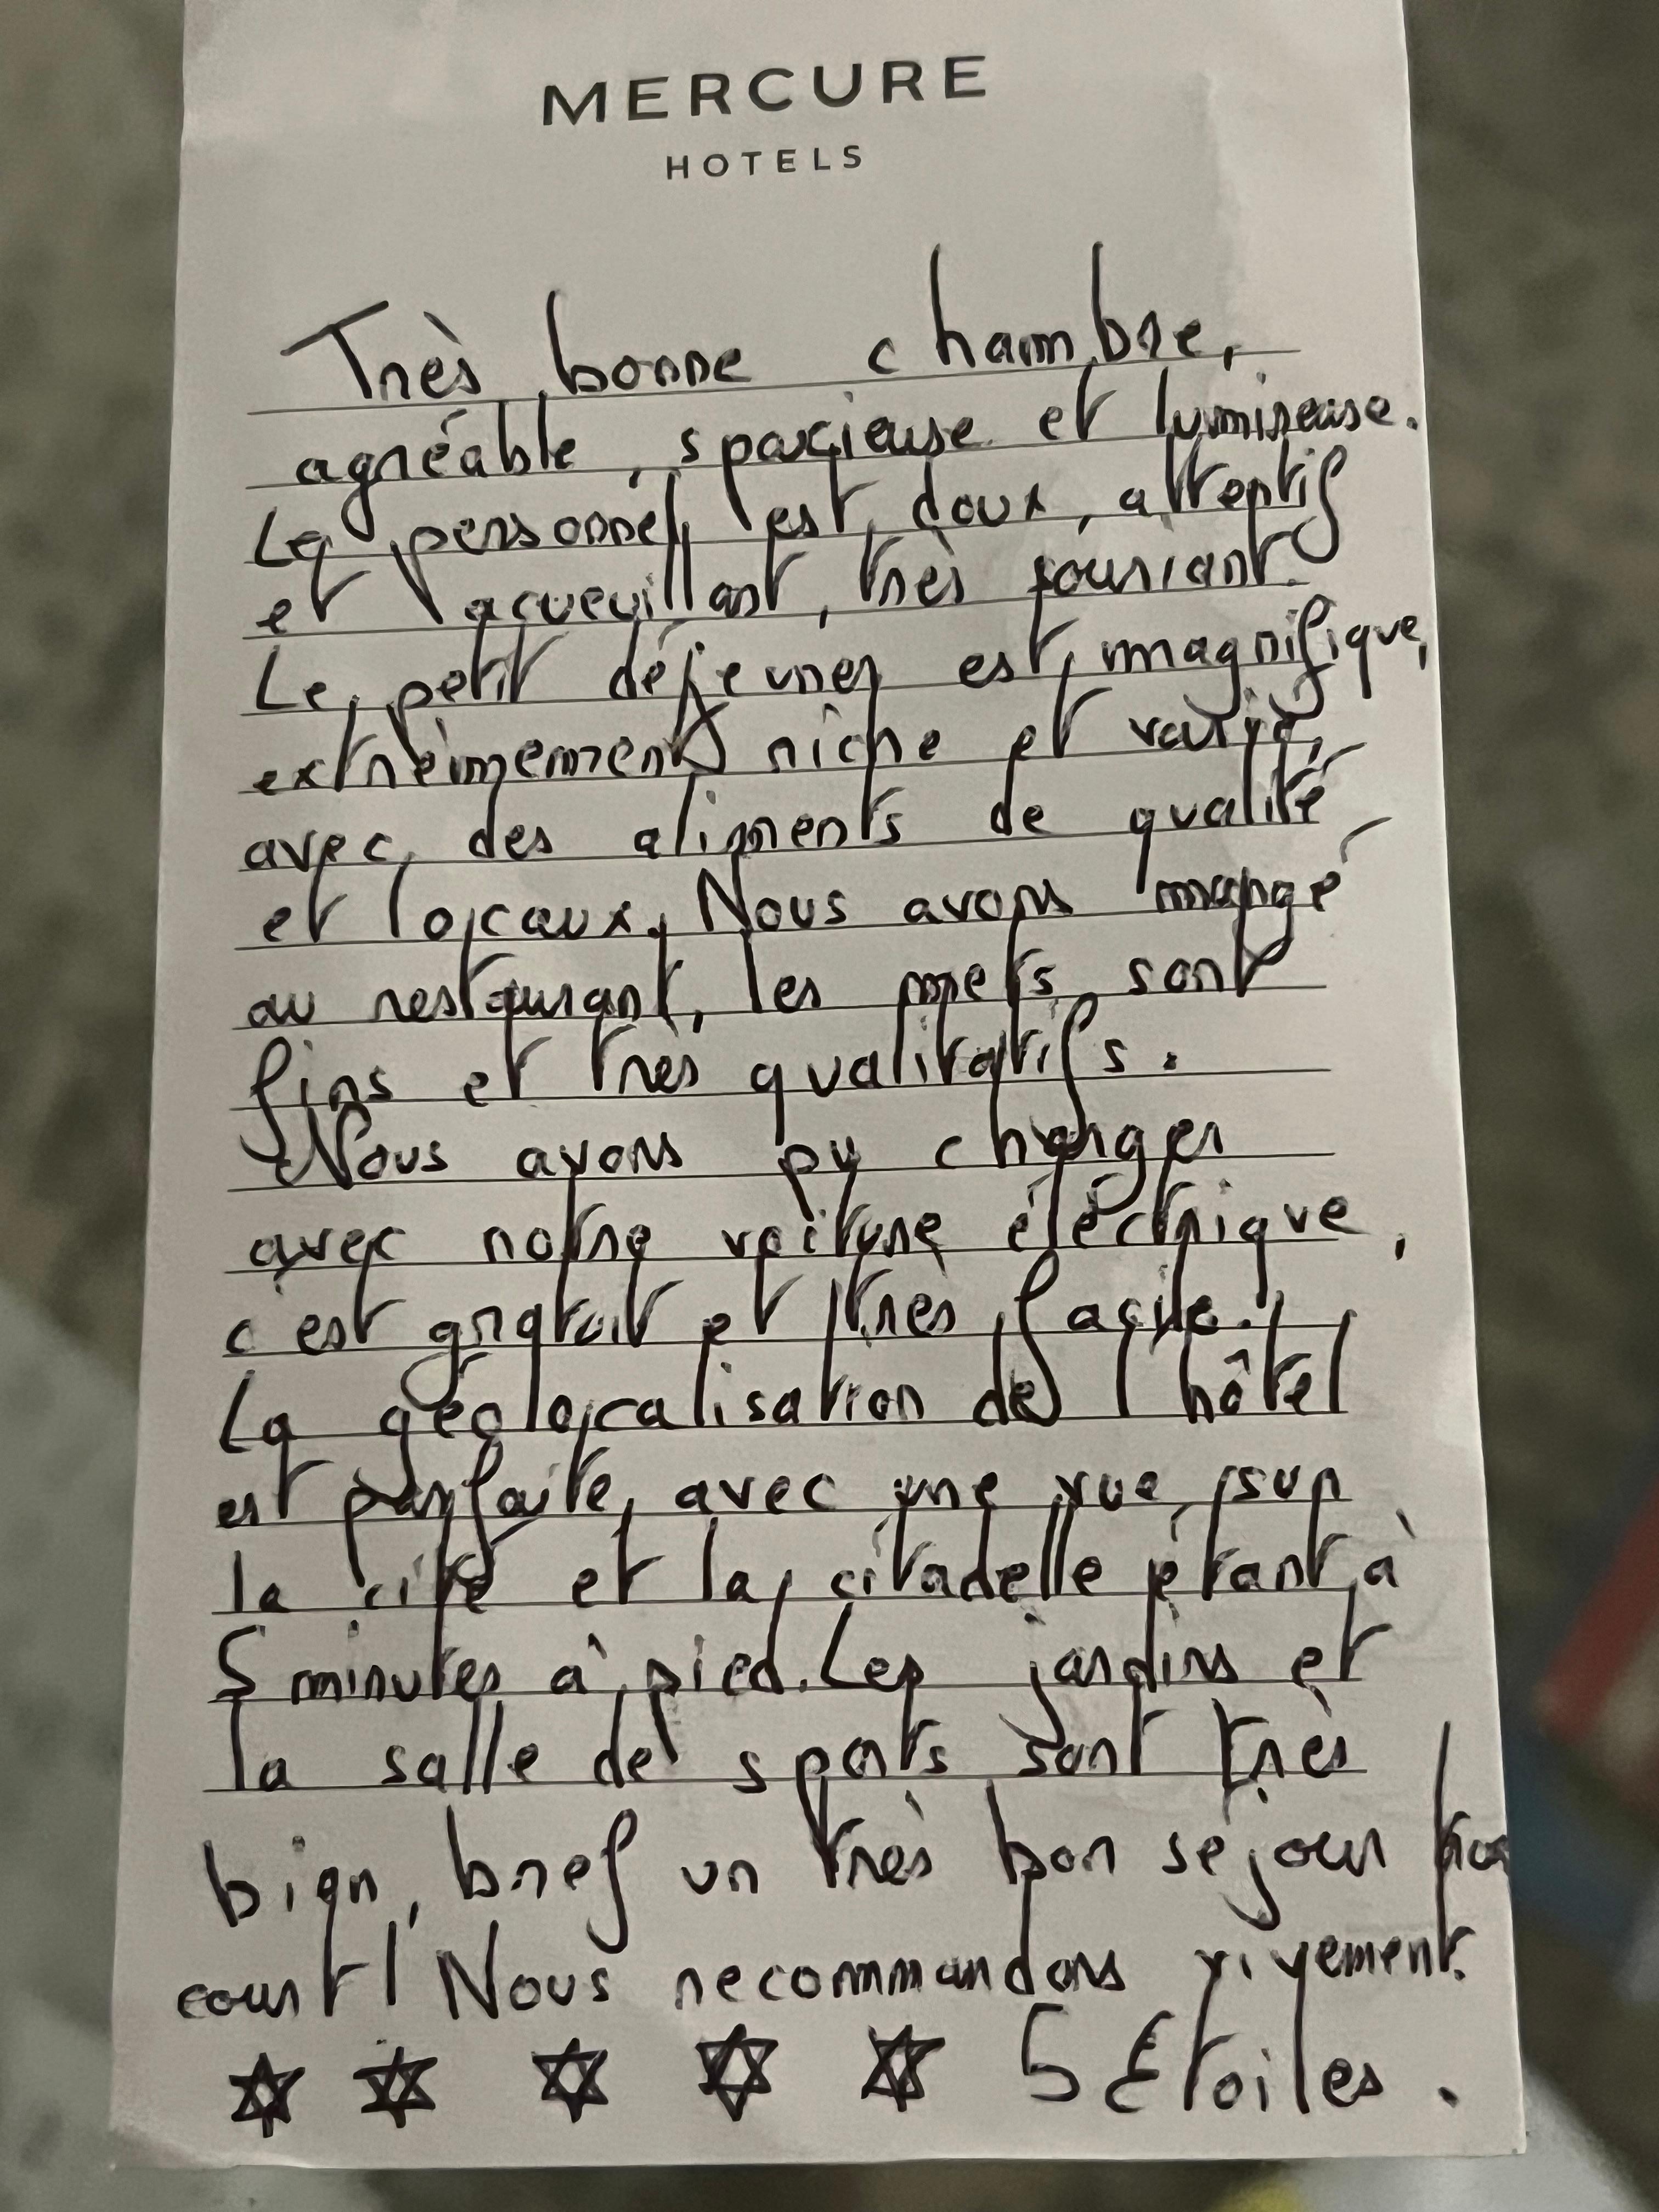 MERCURE
HOTELS
Très bonne chambre,
agréable, spacieuse et lumineuse.
Le personnel est doux, attentif
et acueuillant, très souriant.
Le petit déjeuner est magnifique,
extrèmement riche et varié,
avec des aliments de qualité
et locaux. Nous avons mangé
au restaurant, les mets sont
fins et très qualitatifs.
Nous avons pu charger
avec notre voiture éléctrique,
c'est gratuit et très facile.
La géolocalisation de l'hôtel
est parfaite, avec une vue sur
la cité et la citadelle étant à
5 minutes à pied. Les jardins et
la salle de sports sont très
bien, bref un très bon séjour trop
court! Nous recommandons vivement.
✡ ✡ ✡ ✡ ✡ 5 Etoiles.